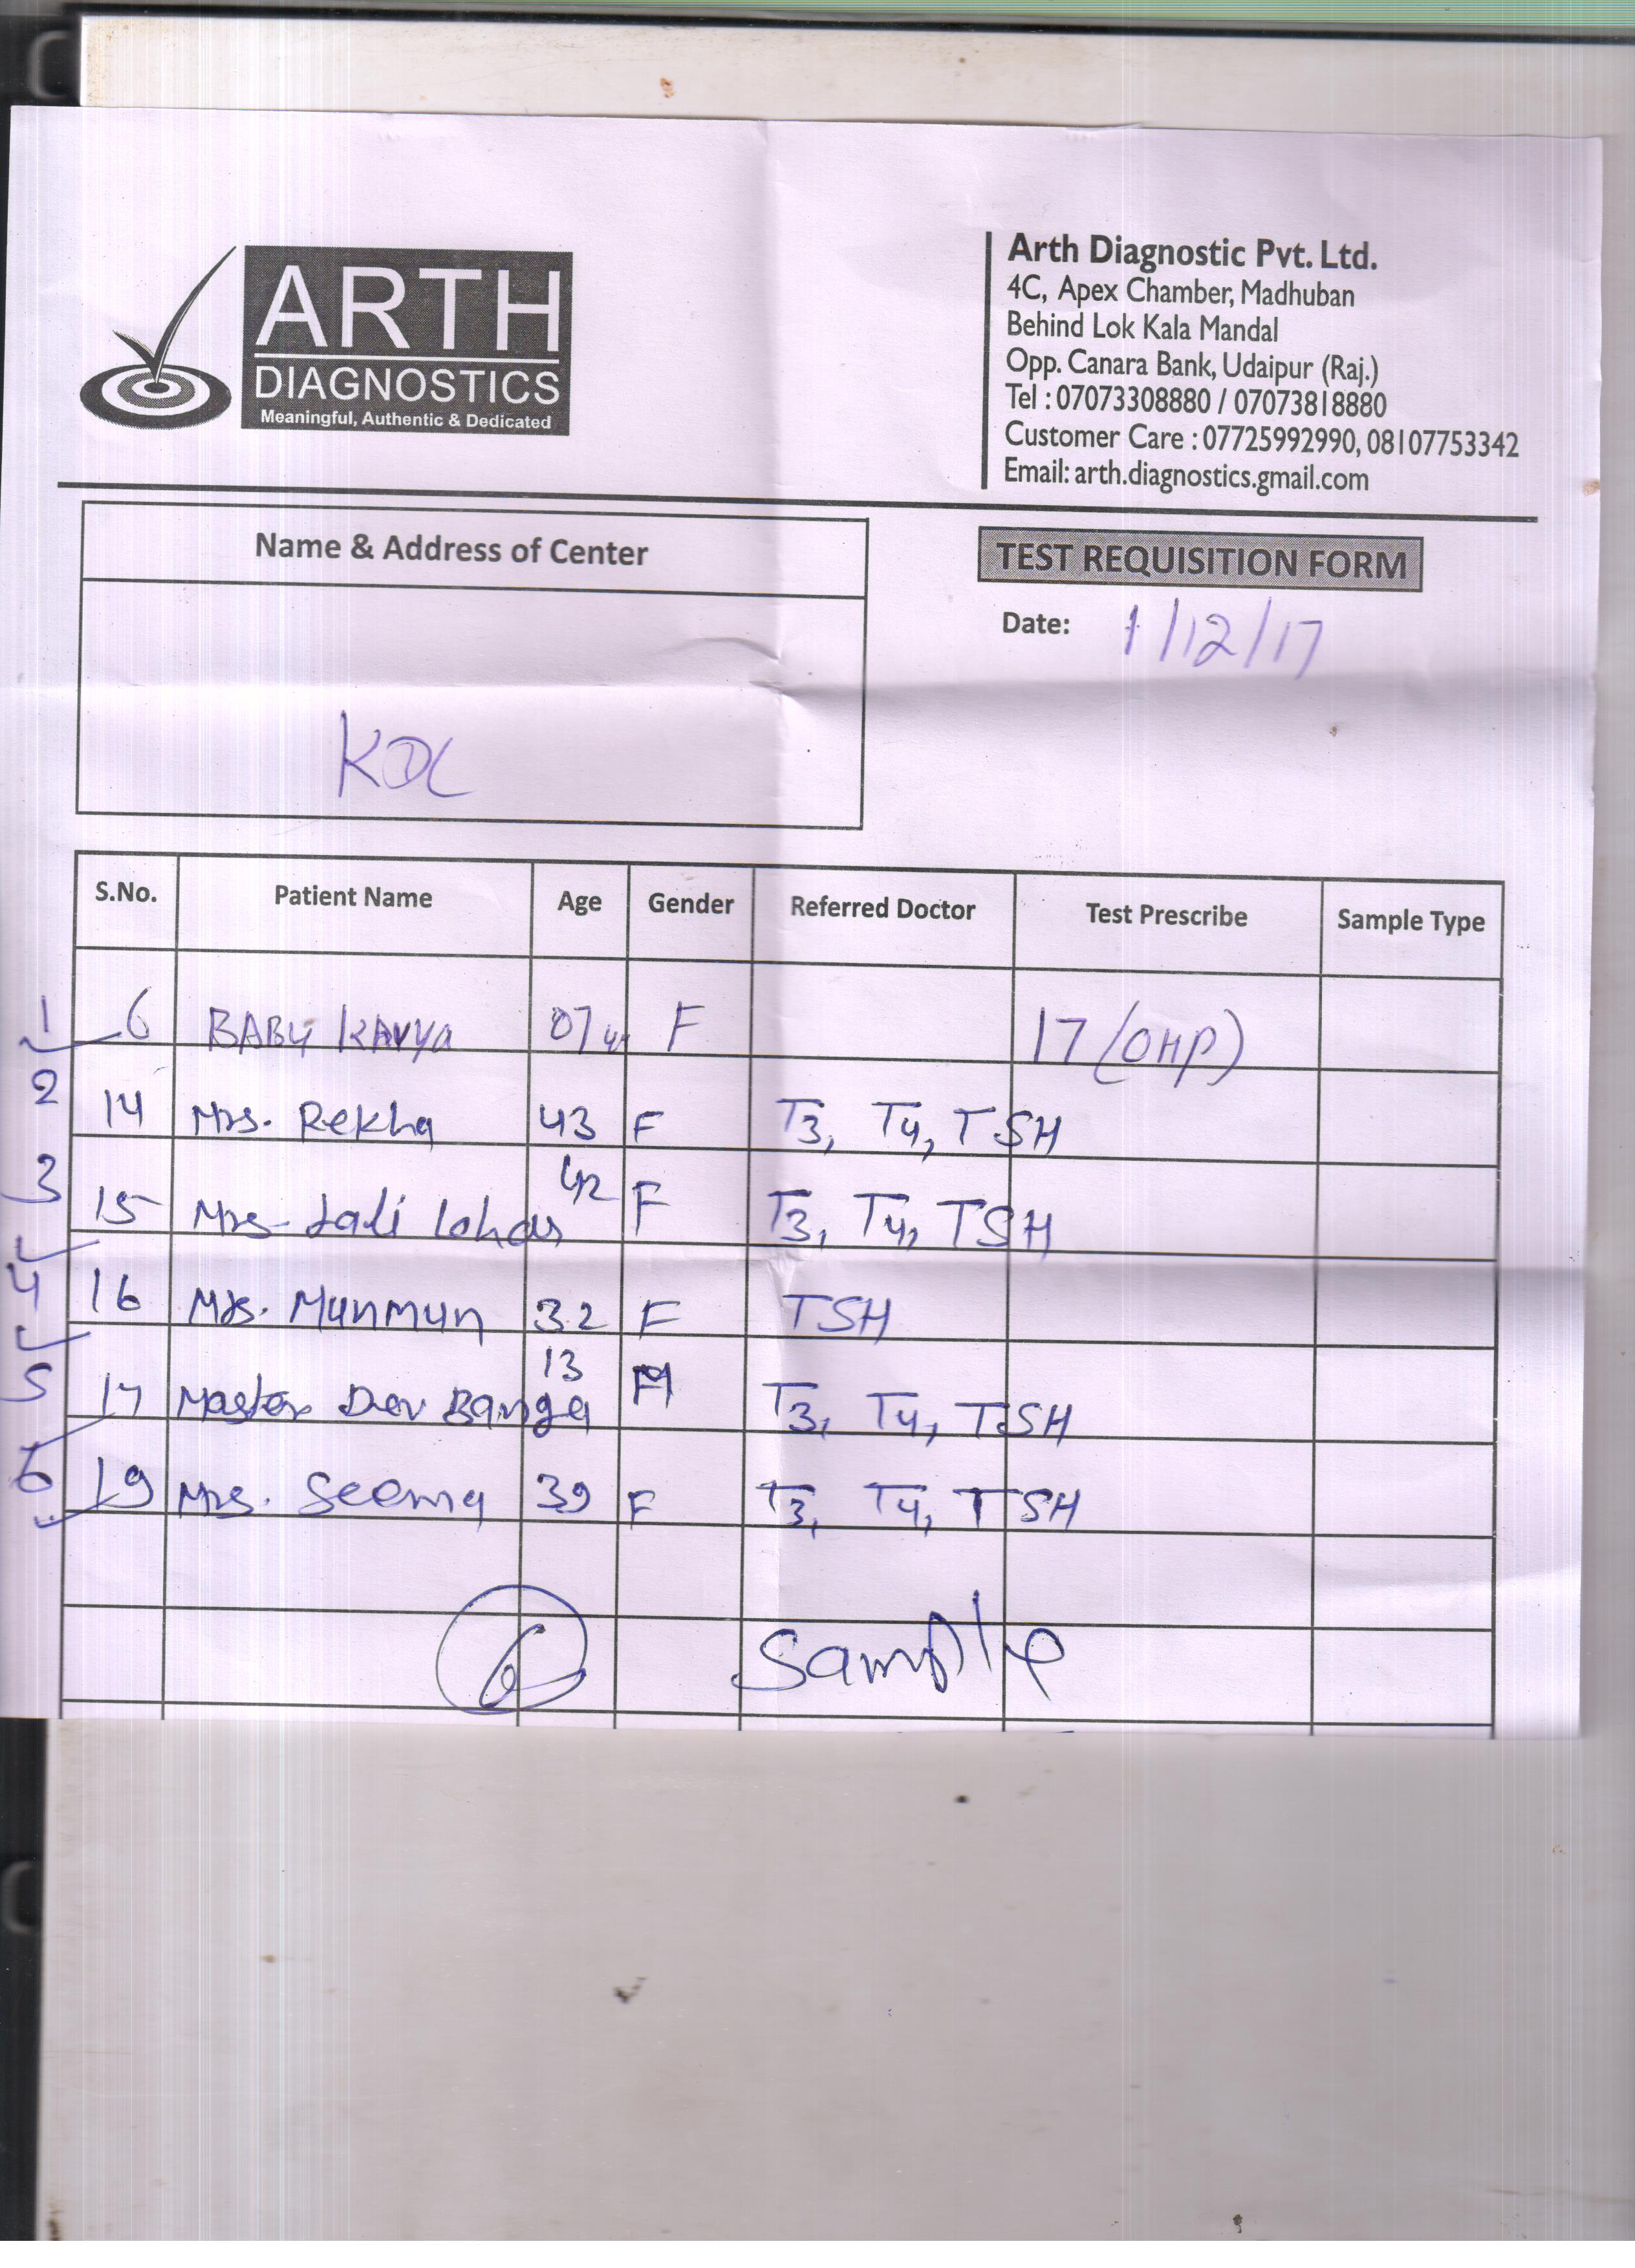 ARTH
DIAGNOSTICS
Meaningful, Authentic & Dedicated
Arth Diagnostic Pvt. Ltd.
4C, Apex Chamber, Madhuban
Behind Lok Kala Mandal
Opp. Canara Bank, Udaipur (Raj.)
Tel : 07073308880 / 07073818880
Customer Care : 07725992990, 08107753342
Email: arth.diagnostics.gmail.com
Name & Address of Center
KDL
TEST REQUISITION FORM
Date: 1/12/17
S.No. Patient Name Age Gender Referred Doctor Test Prescribe Sample Type
1 6 BABY KAVYA 07 F 17 (OHP)
2 14 Mrs. Rekha 43 F T3, T4, TSH
3 15 Mrs. Lali Lohar 42 F T3, T4, TSH
4 16 Mrs. Munmun 32 F TSH
5 17 Master Dev Banga 13 M T3, T4, TSH
6 19 Mrs. Seema 39 F T3, T4, TSH
6 Sample